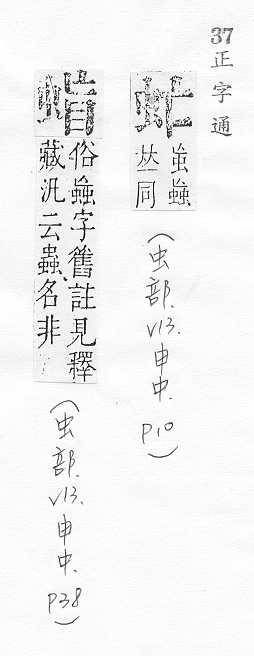 37
正字通
虻
䖟蝱
𠀤同
(虫部.v13.申中.p10)
俗蝱字舊註見釋
藏汎云蟲名非
(虫部.v13.申中.p38)